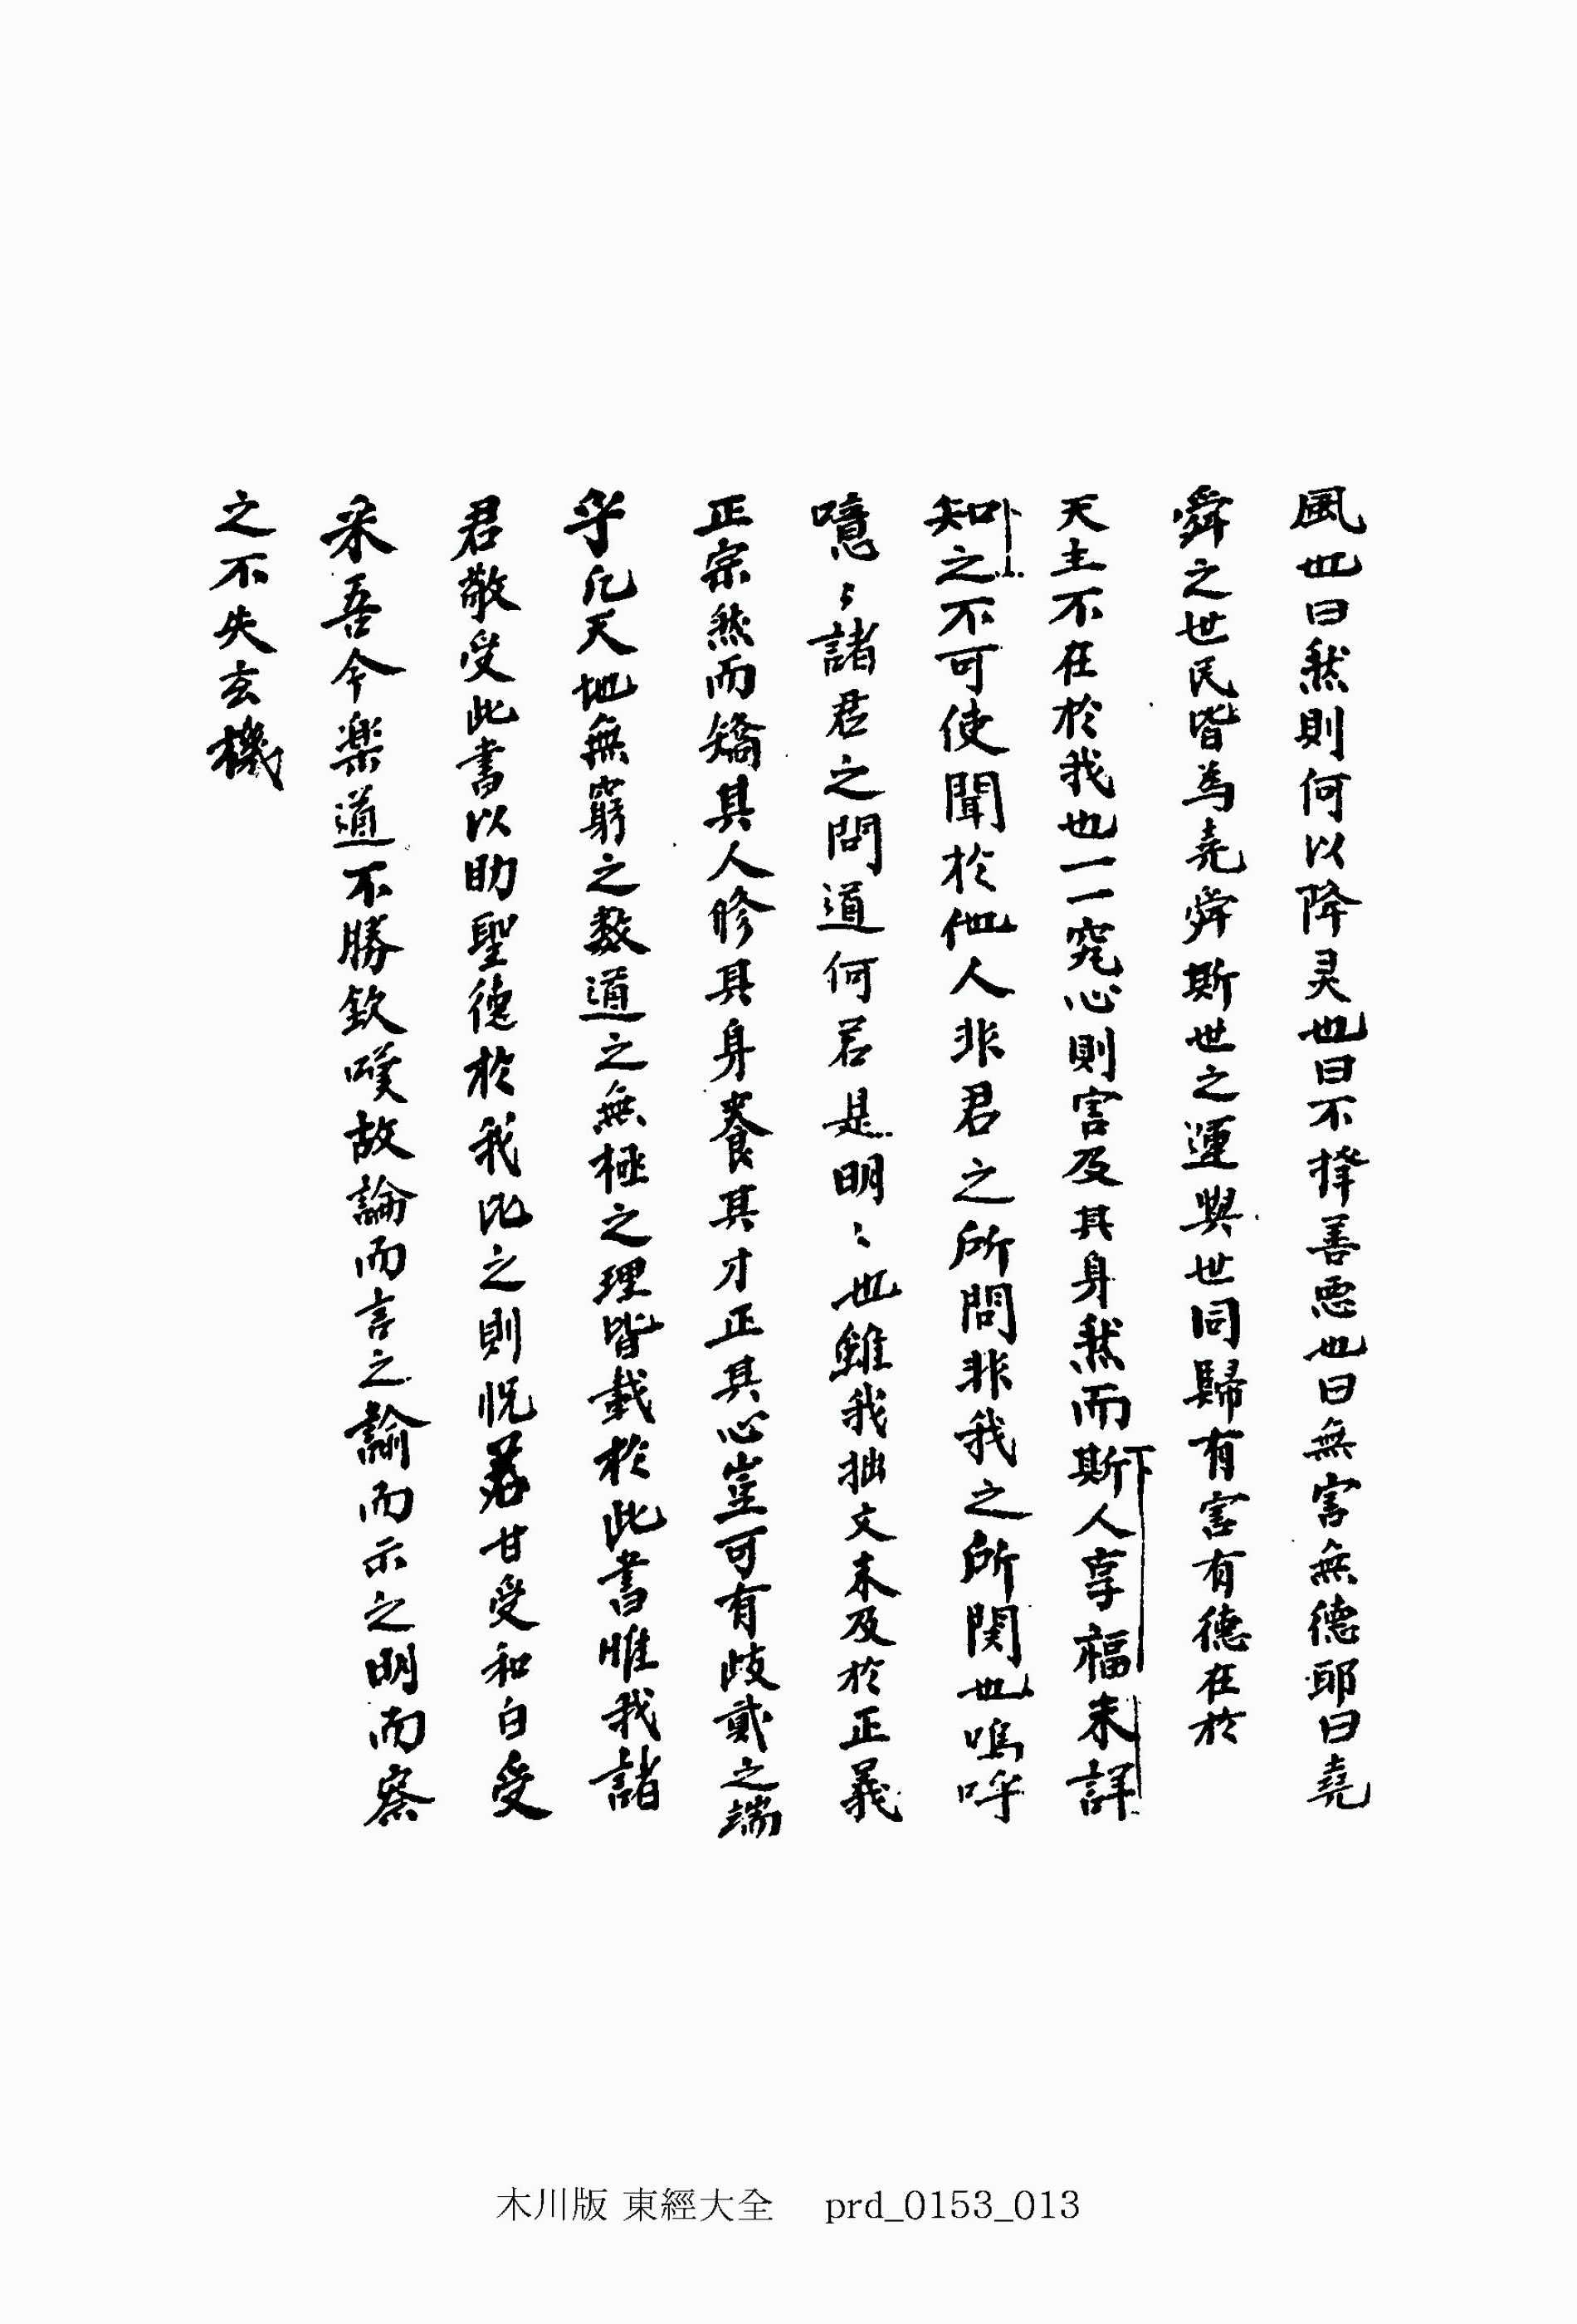 風也曰然則何以降灵也曰不擇善悪也曰無害無德耶曰堯
舜之世民皆爲堯舜斯世之運與世同歸有害有德在於
天主不在於我也一一究心則害及其身然而斯人享福未詳
知之不可使聞於他人非君之所問非我之所関也嗚呼
噫〻諸君之問道何若是明〻也雖我拙文未及於正義
正宗然而矯其人修其身養其才正其心豈可有歧貳之端
乎凡天地無窮之数道之無極之理皆載於此書惟我諸
君敬受此書以助聖德於我比之則怳若甘受和白受
采吾今楽道不勝欽嘆故論而言之諭而示之明而察
之不失玄機
木川版 東經大全 prd_0153_013